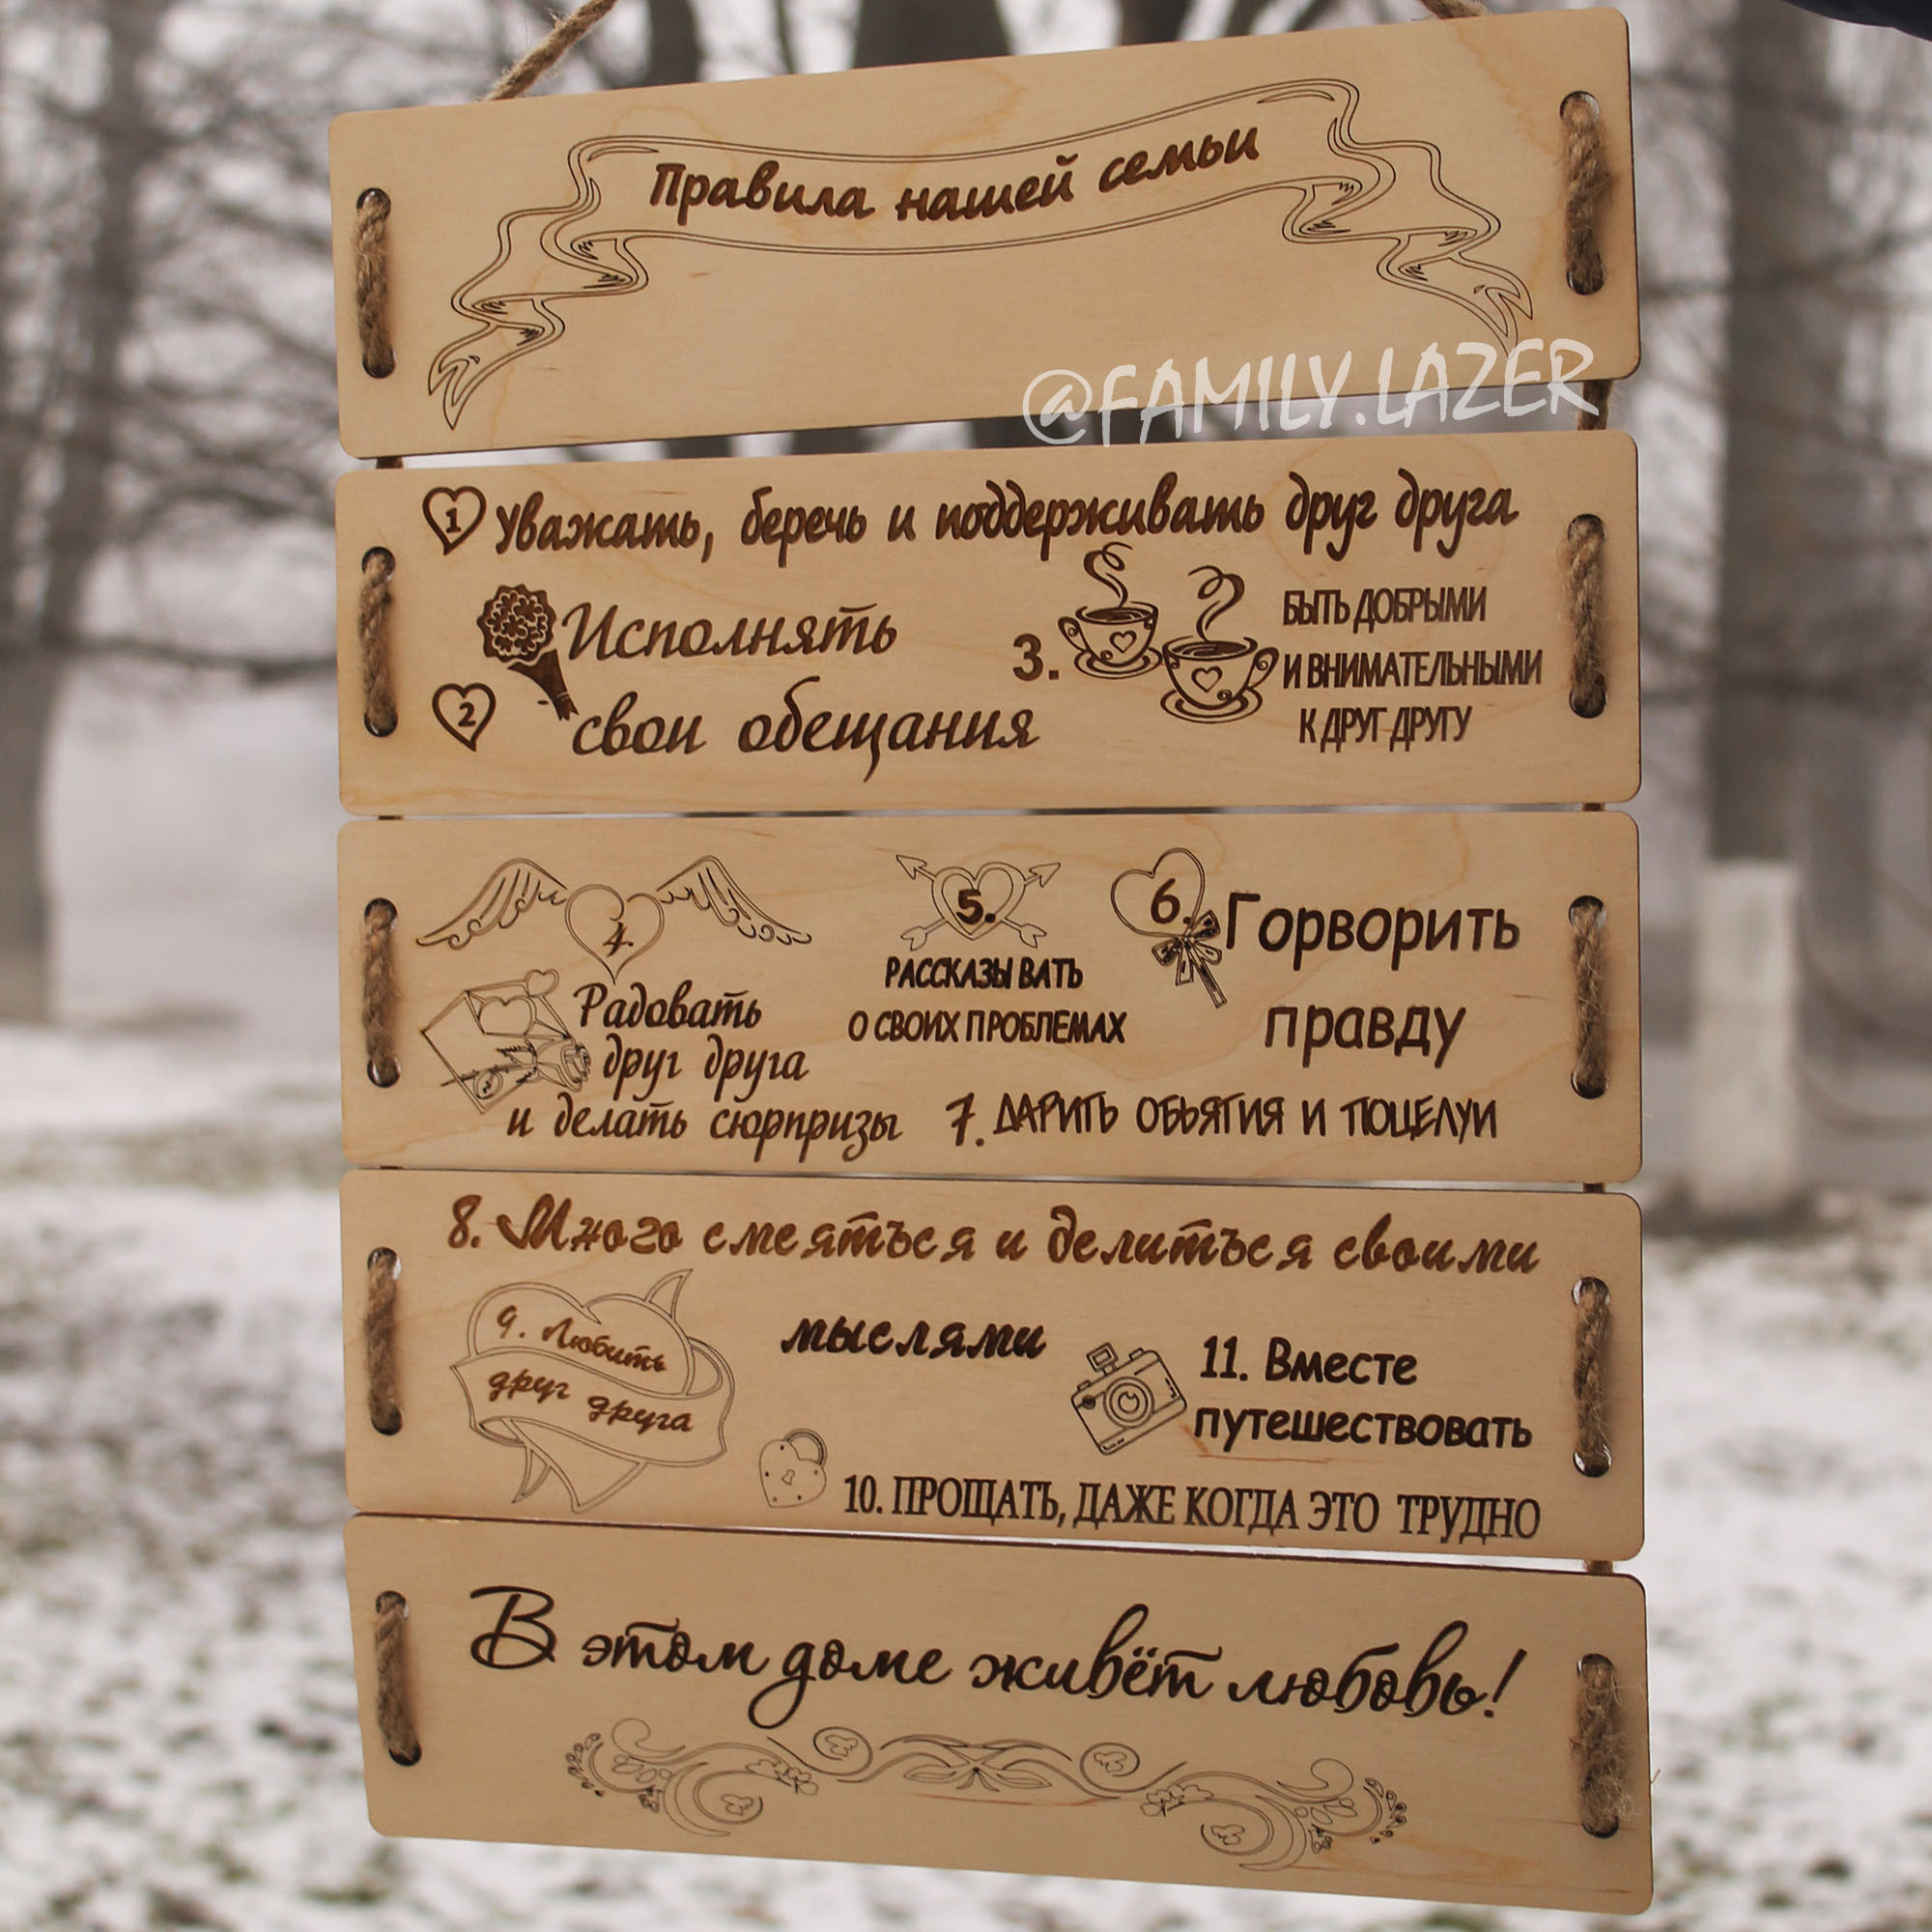 Правила нашей семьи
@FAMILY.LAZER
1 Уважать, беречь и поддерживать друг друга
2 Исполнять
свои обещания
3. БЫТЬ ДОБРЫМИ
И ВНИМАТЕЛЬНЫМИ
К ДРУГ ДРУГУ
4.
Радовать
друг друга
и делать сюрпризы
5.
РАССКАЗЫ ВАТЬ
О СВОИХ ПРОБЛЕМАХ
6. Горворить
правду
7. ДАРИТЬ ОБЬЯТИЯ И ПОЦЕЛУИ
8. Много смеяться и делиться своими
мыслями
9. Любить
друг друга
11. Вместе
путешествовать
10. ПРОЩАТЬ, ДАЖЕ КОГДА ЭТО ТРУДНО
В этом доме живёт любовь!